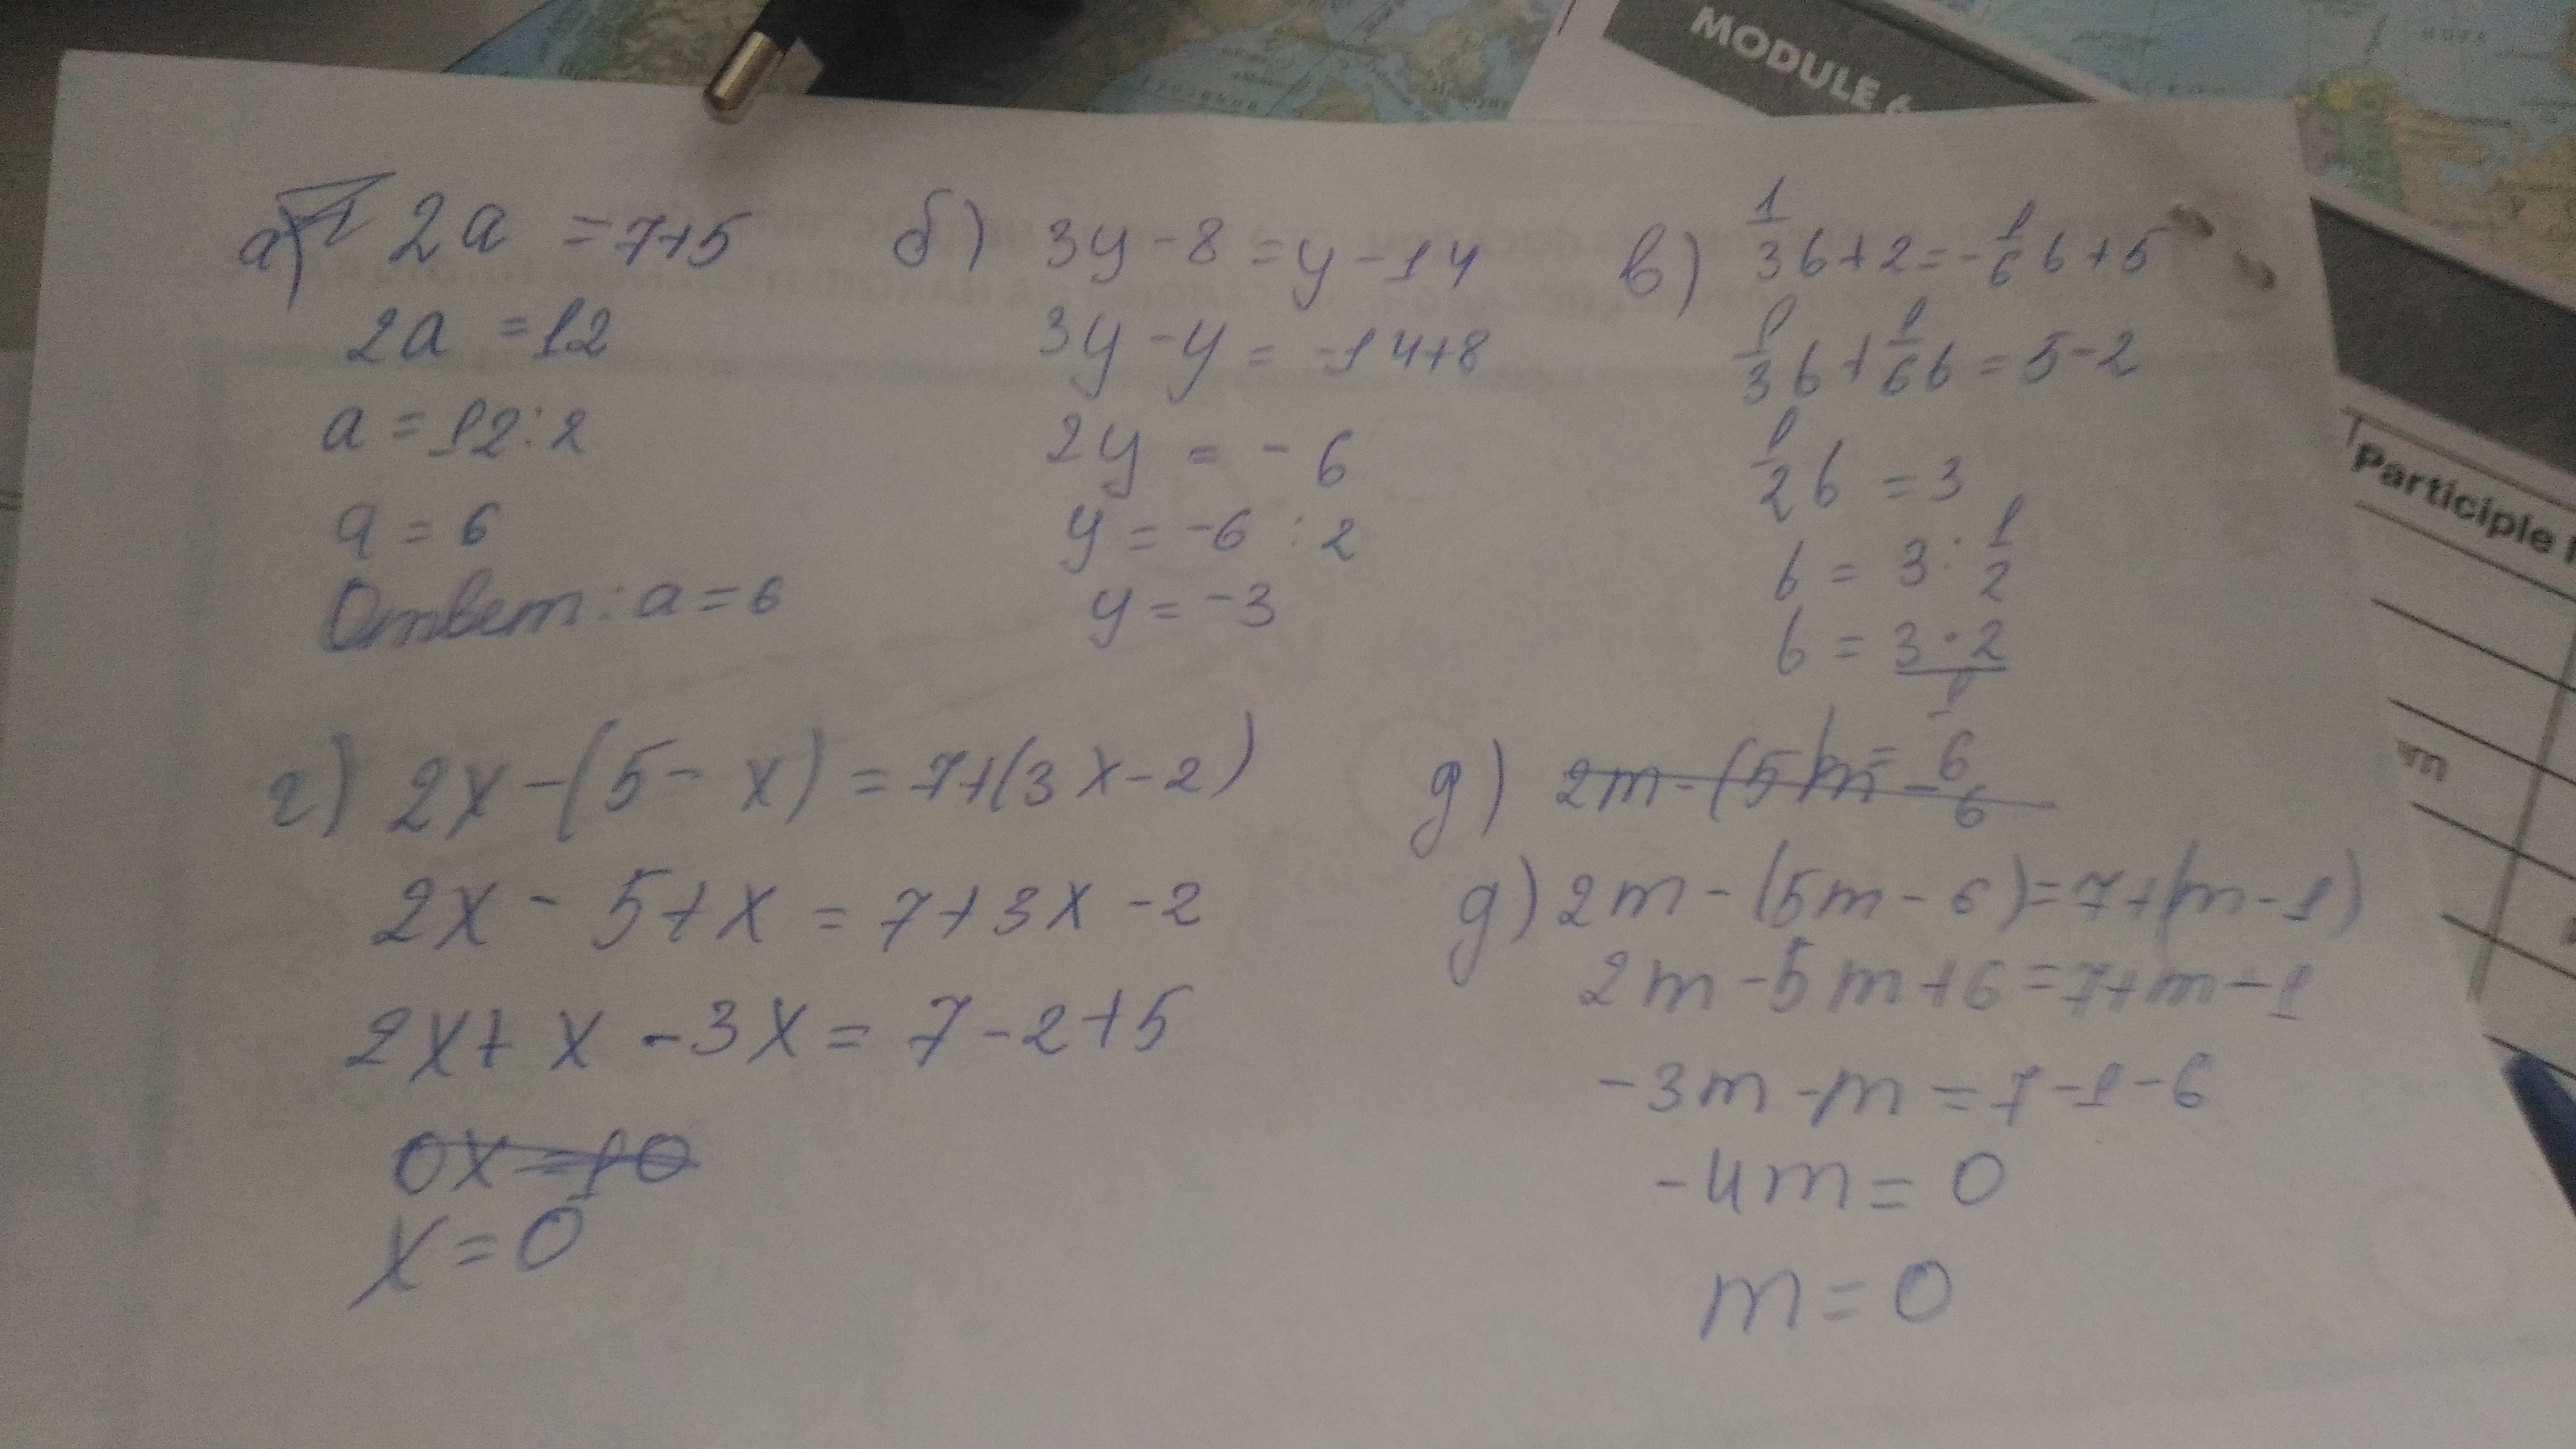 MODULE 6
а) 2a = 7+5
2a = 12
a = 12:2
a = 6
Ответ: a = 6
б) 3y - 8 = y - 14
3y - y = -14+8
2y = -6
y = -6 : 2
y = -3
в) 1/3 b + 2 = -1/6 b + 5
1/3 b + 1/6 b = 5 - 2
1/2 b = 3
b = 3 : 1/2
b = 3·2/1
b = 6
г) 2x - (5 - x) = 7+(3x - 2)
2x - 5 + x = 7 + 3x - 2
2x + x - 3x = 7 - 2 + 5
0x = 10
x = 0
д) 2m - (5m - 6
д) 2m - (5m - 6) = 7 + (m - 1)
2m - 5m + 6 = 7 + m - 1
-3m - m = 7 - 1 - 6
-4m = 0
m = 0
Participle